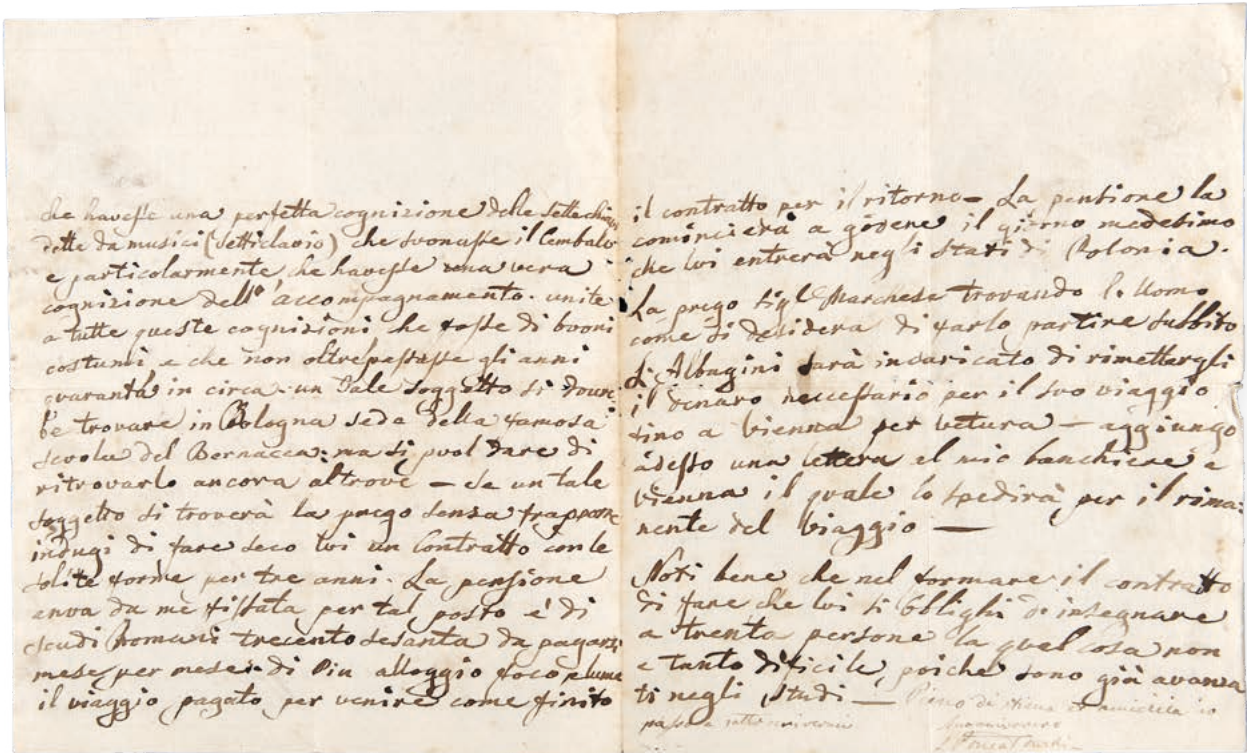 che havesse una perfetta cognizione delle sette chiavi
dette da musici (setticlavio) che suonasse il Cembalo
e particolarmente che havesse una vera
cognizione dell'accompagnamento. unite
a tutte queste cognizioni che fosse di buoni
costumi e che non oltrepassasse gli anni
quaranta in circa. un tale soggetto si dovreb
be trovare in Bologna sede della famosa
scuola del Bernacca: ma si puol dare di
ritrovarlo ancora altrove — se un tale
soggetto si troverà la prego senza frapporre
indugi di fare seco lui un Contratto con le
solite forme per tre anni. La pensione
anva da me fissata per tal posto é di
scudi Romani trecento sesanta da pagarsi
mese per mese di Piu alloggio foco e lume
il viaggio pagato per venire come finito
il contratto per il ritorno — La pensione la
comincierà a godere il giorno medesimo
che lui entrerà negli stati di Polonia.
La prego Sigr Marchese trovando l'Uomo
come si desidera di farlo partire subbito
Albagini sarà incaricato di rimettergli
il dinaro necessario per il suo viaggio
fino a Vienna per vetura — aggiungo
adesso una lettera al mio banchiere a
Vienna il quale lo spedirà, per il rima:
nente del viaggio —
Noti bene che nel formare il contratto
di fare che lui si obblighi de insegnare
a trenta persone la qual cosa non
e tanto dificile, poiche sono già avanza
ti negli studi — Pieno di stima ed amicizia io
passo a sotto scrivermi